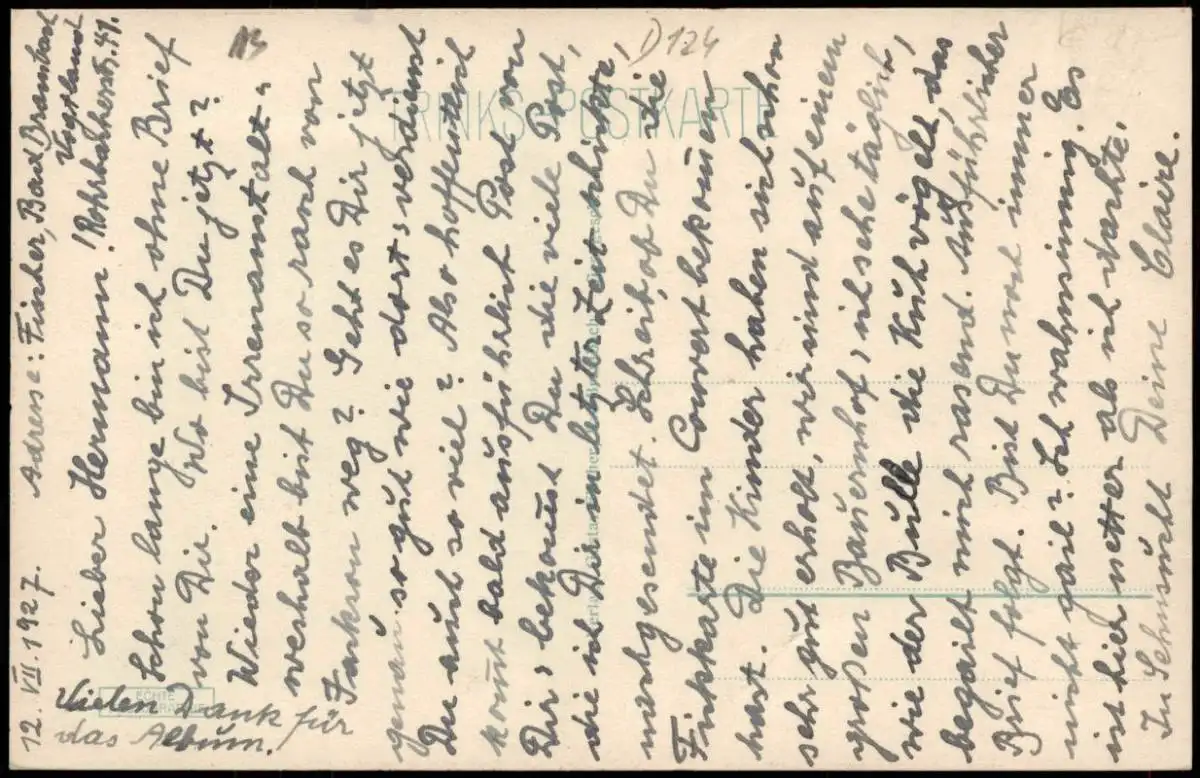 12. VII. 1927. Adresse: Fischer, Bad Brambach
Vogtland
Rohrbacherstr. 41.
Lieber Hermann!
Schon lange bin ich ohne Brief
von Dir. Wo bist Du jetzt?
Wieder eine Irrenanstalt.
weshalb bist Du so rasch von
Frankson weg? Geht es Dir jetzt
genau so gut wie dort, verdienst
Du auch so viel? Also hoffentlich
kom̄t bald ausführlich Post von
Dir, bekom̄st Du die viele Post,
die ich Dir in letzter Zeit schickte,
nachgesendet. Schreib, ob Du die
Finkkarte im Couvert bekom̄en
hast. Die Kinder haben sich schon
sehr gut erholt, wir sind auf einem
großen Bauernhof, ich sehe täglich,
wie der Bulle die Kuh vögelt, das
begeilt mich rasend. Ausführlicher
Brief folgt. Bist Du noch immer
nicht geil? Ich wahnsinnig. Es
ist hier netter als ich dachte.
In Sehnsucht Deine Claire.
Vielen Dank für
das Album.
D124
TRINKS-POSTKARTE
ECHTE